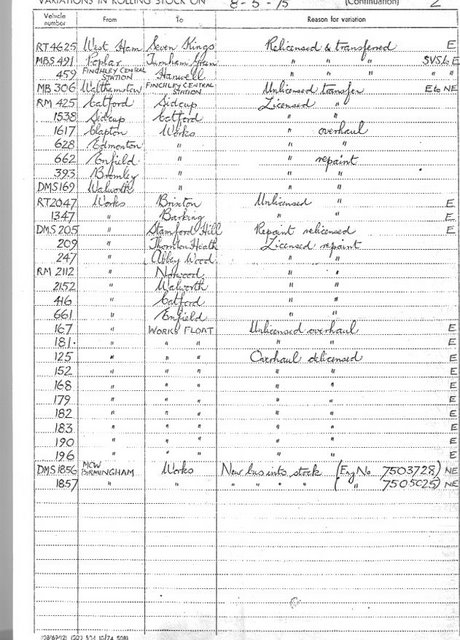 VARIATIONS IN ROLLING STOCK ON 8-5-75 (Continuation) 2
Vehicle number From To Reason for variation
RT 4625 West Ham Seven Kings Relicensed & transferred E
MBS 491 Poplar Turnham Green " " " SVSL E
459 FINCHLEY CENTRAL STATION Hanwell " " " " "
MB 306 Walthamstow FINCHLEY CENTRAL STATION Unlicensed transfer E to NE
RM 425 Catford Sidcup Licensed "
1538 Sidcup Catford " "
1617 Clapton Works " overhaul
628 Edmonton " " "
662 Enfield " " repaint
393 Bromley " " "
DMS 169 Walworth " " "
RT 2047 Works Brixton Unlicensed " E
1347 " Barking " " E
DMS 205 " Stamford Hill Repaint relicensed E
209 " Thornton Heath Licensed repaint
247 " Abbey Wood " "
RM 2112 " Norwood " "
2152 " Walworth " "
416 " Catford " "
661 " Enfield " "
167 " WORKS FLOAT Unlicensed overhaul E
181 " " " " " E
125 " " " Overhaul delicensed E
152 " " " " " E
168 " " " " " E
179 " " " " " E
182 " " " " " E
183 " " " " " E
190 " " " " " E
196 " " " " " E
DMS 1856 MCW BIRMINGHAM Works New bus into stock (Eng No 7503728) NE
1857 " " " " " " ( " 7505025) NE